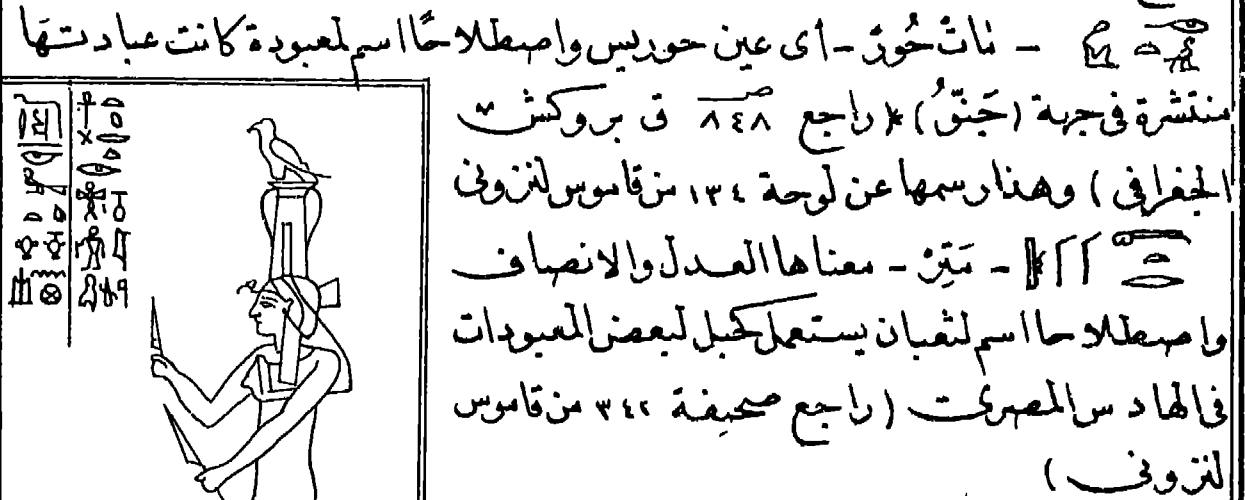 – نات حُورْ – أى عين حوريس واصطلاحًا اسم لمعبودة كانت عبادتها
منتشرة فى جهة (حَبنّوُ) (راجع صـ ٨٤٨ ق بروكش
الجغرافى) وهذا رسمها عن لوحة ١٣٤ من قاموس لنزونى
– مَتِرْ – معناها العدل والانصاف
واصطلاحا اسم لثعبان يستعمل كحبل لبعض المعبودات
فى الهادس المصرى (راجع صحيفة ٣٤٢ من قاموس
لنزونى)